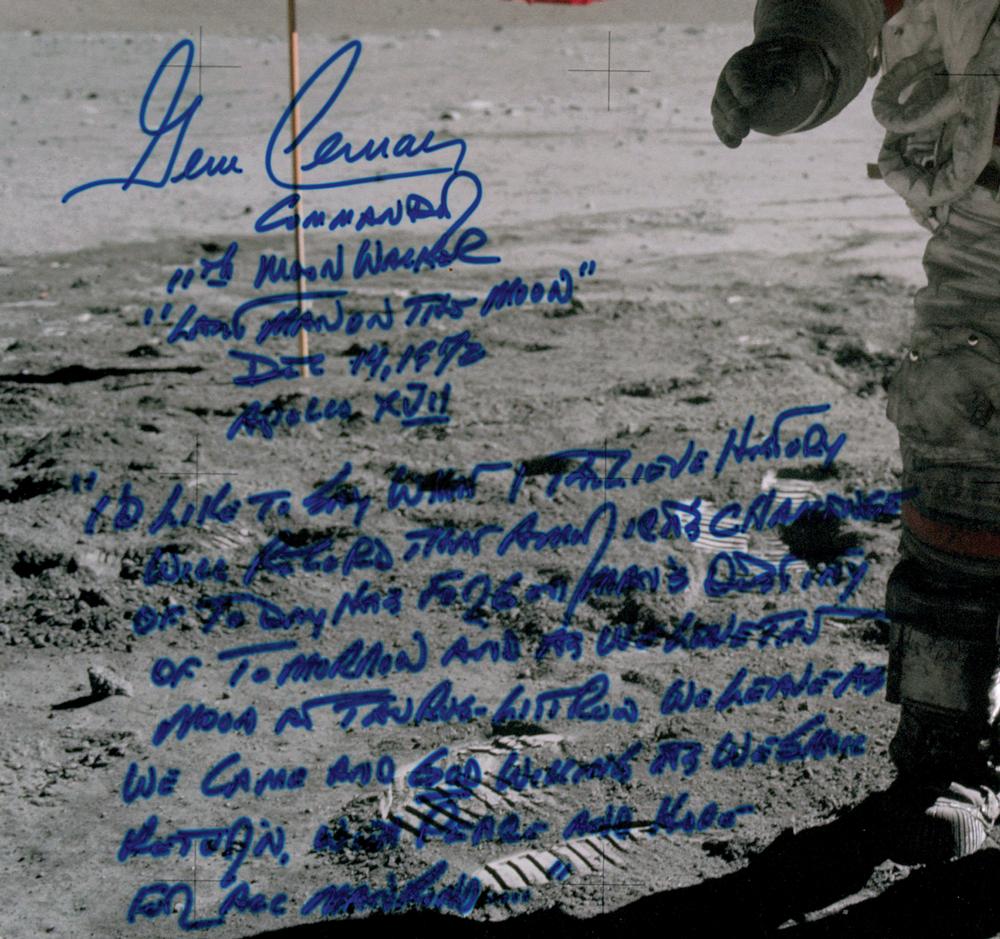 Gene Cernan
COMMANDER
11th MOON WALKER
"LAST MAN ON THE MOON"
DEC 14, 1972
APOLLO XVII
"I'D LIKE TO SAY WHAT I BELIEVE HISTORY
WILL RECORD THAT AMERICA'S CHALLENGE
OF TODAY HAS FORGED MAN'S DESTINY
OF TOMORROW AND AS WE LEAVE THE
MOON AT TAURUS-LITTROW WE LEAVE AS
WE CAME AND GOD WILLING AS WE SHALL
RETURN, WITH PEACE AND HOPE
FOR ALL MANKIND...."